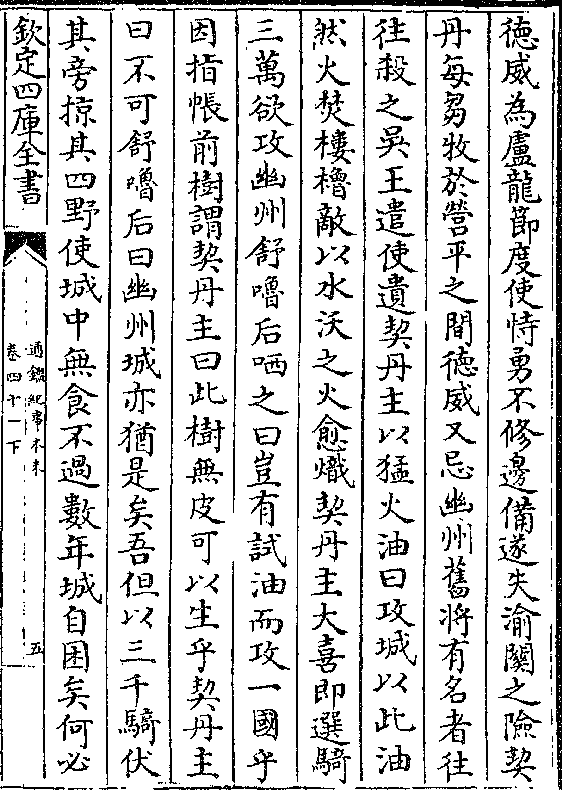 德威為盧龍節度使恃勇不修邊備遂失渝關之險契
丹每芻牧於營平之間德威又忌幽州舊將有名者往
往殺之吳王遣使遺契丹主以猛火油曰攻城以此油
然火焚樓櫓敵以水沃之火愈熾契丹主大喜即選騎
三萬欲攻幽州舒嚕后哂之曰豈有試油而攻一國乎
因指帳前樹謂契丹主曰此樹無皮可以生乎契丹主
曰不可舒嚕后曰幽州城亦猶是矣吾但以三千騎伏
其旁掠其四野使城中無食不過數年城自困矣何必
欽定四庫全書
通鑑紀事本末
卷四十一下
五